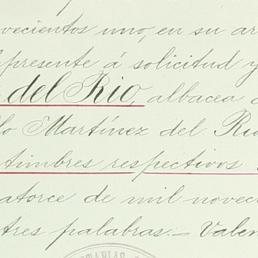 vecientos uno, en su ar
presente á solicitud y
del Rio, albacea
lo Martínez del Rio
timbres respectivos
atorce de mil novec
tres palabras.—Valen